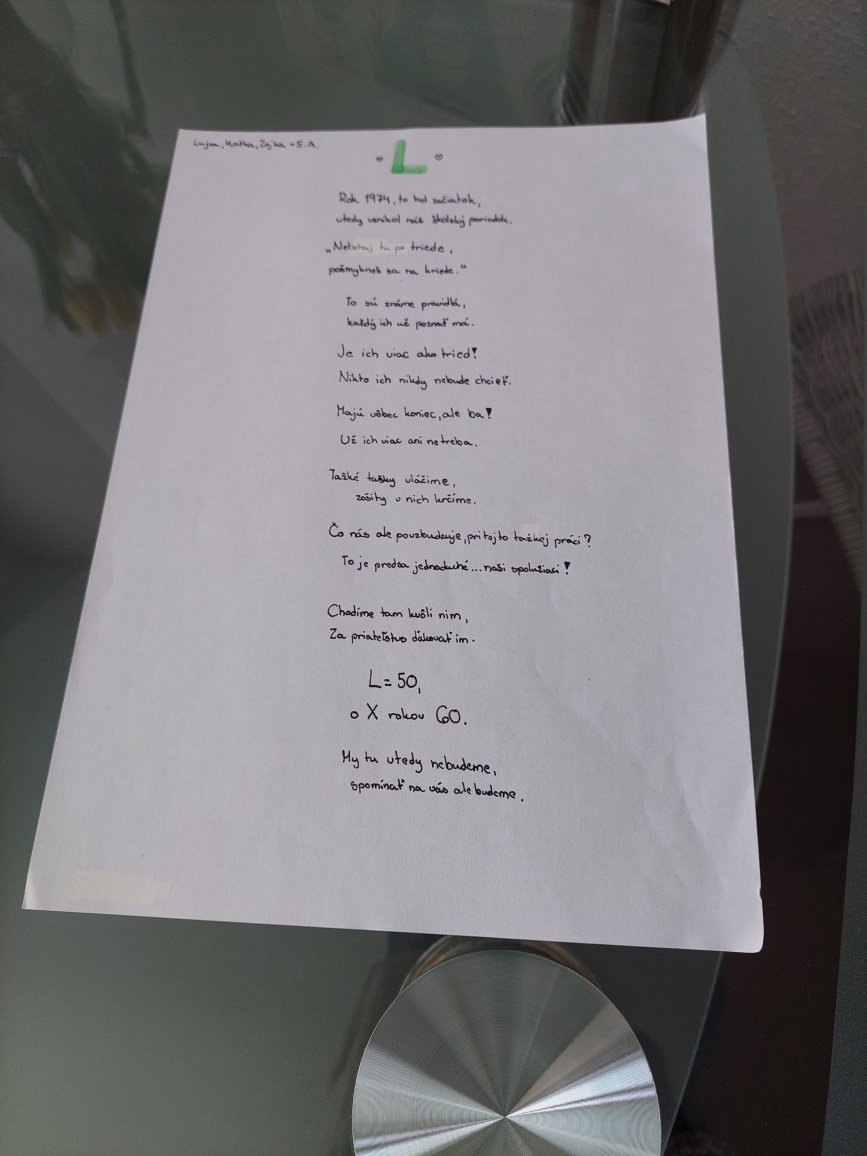 Lujza, Katka, Zojka - 5.A
L
Rok 1974, to bol začiatok,
vtedy vznikol náš školský poriadok.
„Nebehaj tu po triede,
pošmykneš sa na kriede."
To sú známe pravidlá,
každý ich už poznať má.
Je ich viac ako tried!
Nikto ich nikdy nebude chcieť.
Majú vôbec koniec, ale ba!
Už ich viac ani netreba.
Ťažké tašky vláčime,
zošity v nich krčíme.
Čo nás ale povzbudzuje, pri tejto ťažkej práci?
To je predsa jednoduché... naši spolužiaci!
Chodíme tam kvôli nim,
Za priateľstvo ďakovať im.
L = 50,
o X rokov 60.
My tu vtedy nebudeme,
spomínať na vás ale budeme.